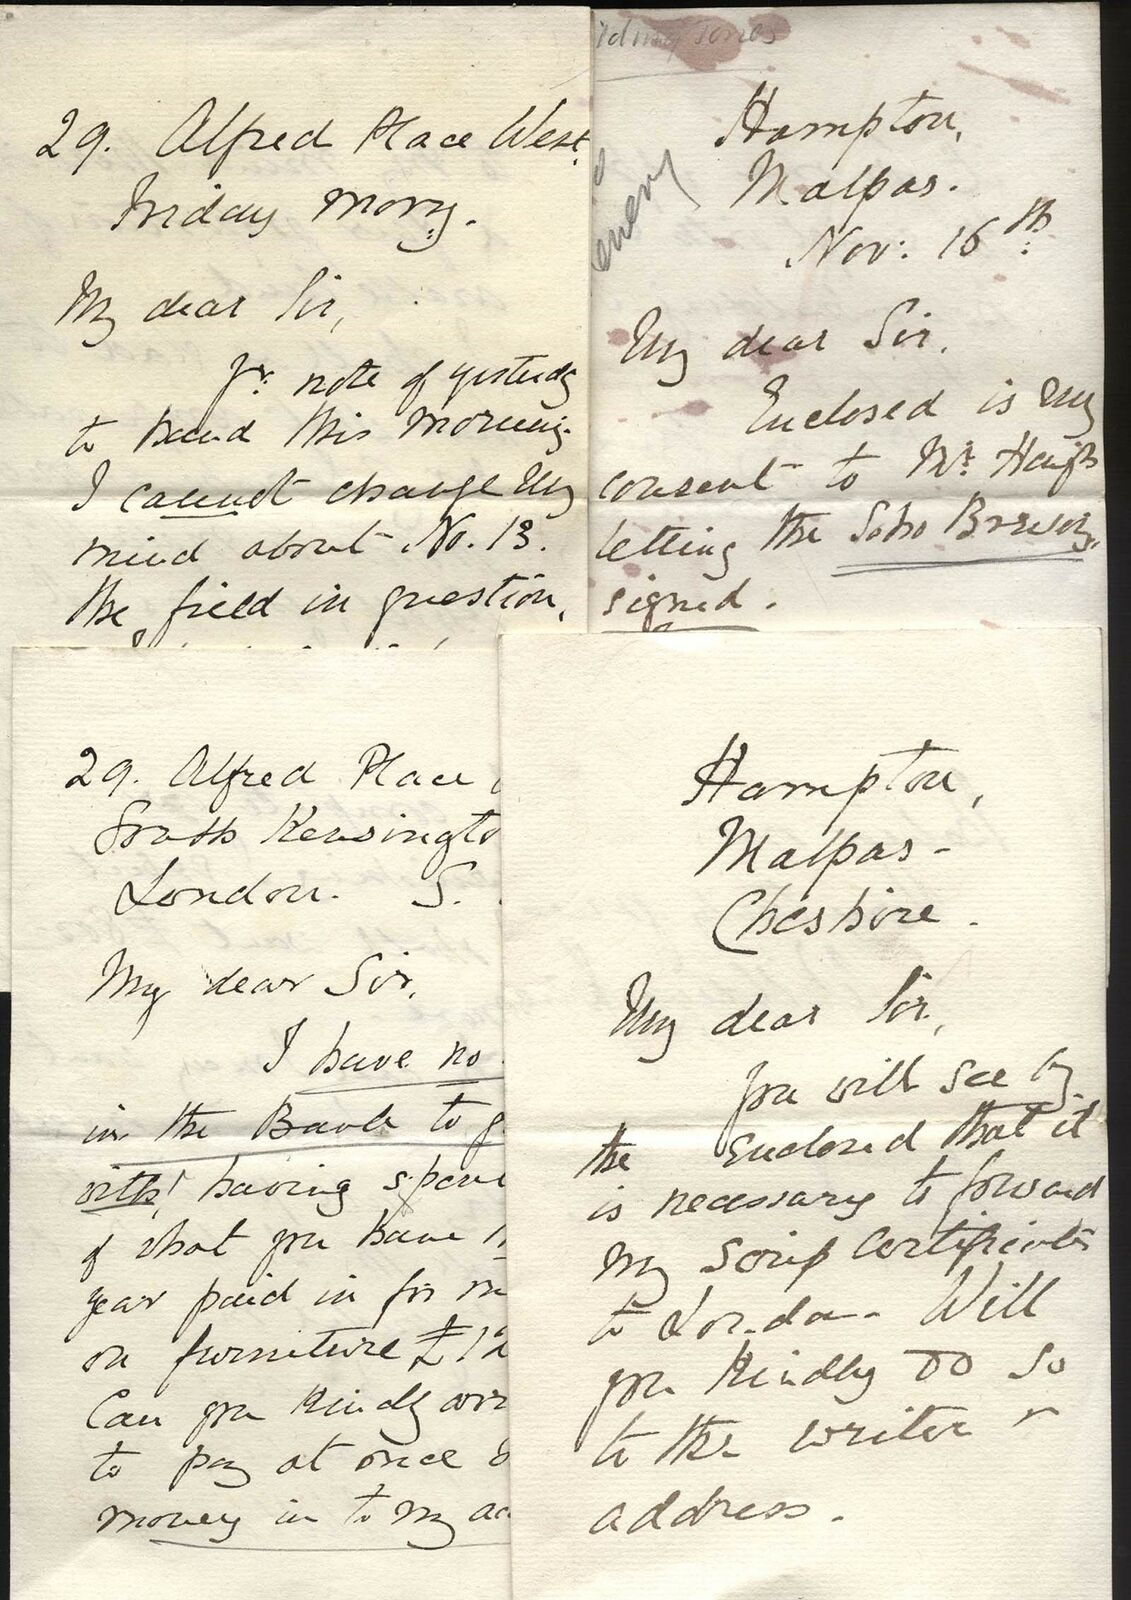 29. Alfred Place West.
Friday Morng.
My dear Sir,
Yr. note of yesterday
to hand this morning.
I cannot change my
mind about No. 13.
the field in question,
Jones
Hampton,
Malpas.
Nov: 16th
My dear Sir.
Enclosed is my
consent to Mr. Haigh
letting the Soho Brewery,
signed.
29. Alfred Place
South Kensingto
London. S.
My dear Sir.
I have no
in the Bank to
with! having spent
of what you have
year paid in for
on furniture £12
Can you kindly
to pay at once
money in to my ac
Hampton,
Malpas-
Cheshire.
My dear Sir,
You will see by
the Enclosed that it
is necessary to forward
my Scrip Certificates
to London. Will
you kindly do so
to the writer
address.